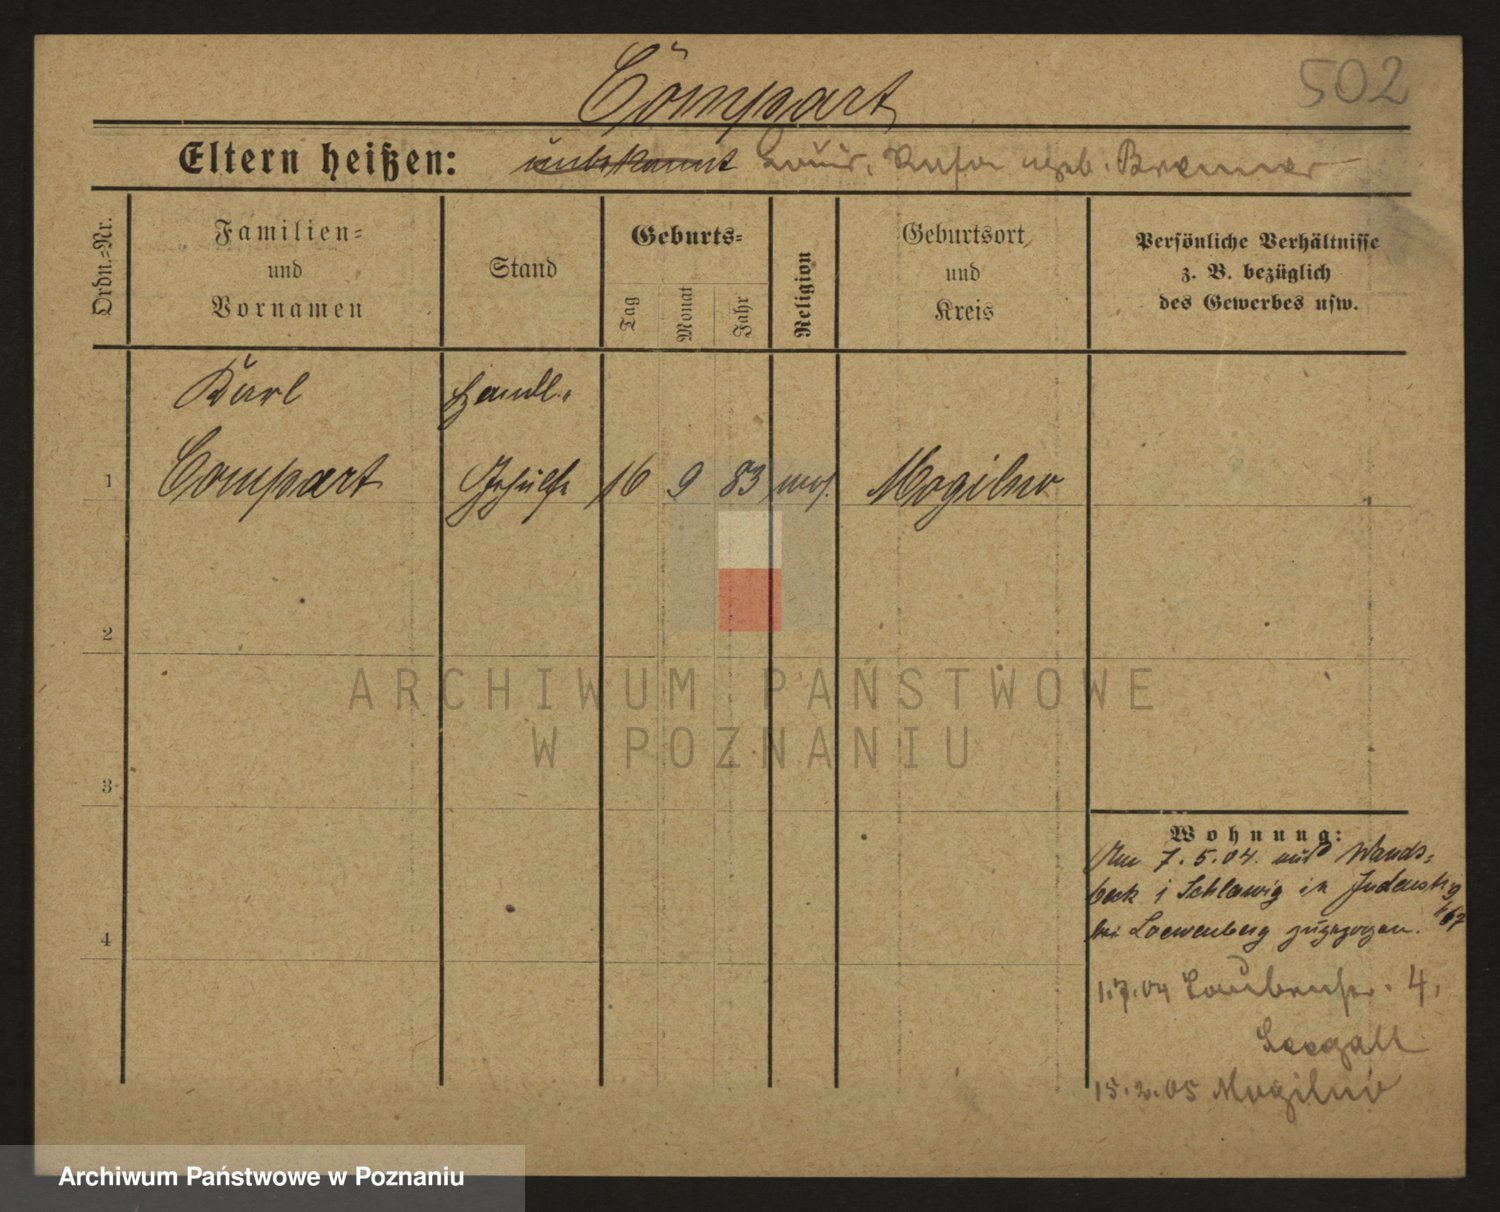 Compart
502
Eltern heißen: unbekannt Louis, geb. Bremer
Ordn.-Nr.
Familien-
und
Vornamen
Stand
Geburts-
Tag
Monat
Jahr
Religion
Geburtsort
und
Kreis
Persönliche Verhältnisse
z. B. bezüglich
des Gewerbes usw.
Karl
Handl.-
1
Compart
Gehülfe
16
9
83
mos.
Mogilno
2
3
4
Wohnung:
Am 7.5.04. aus Wands-
beck i Schlewig in Judenstr
bei Loewenberg zugezogen.
1.7.04 4,
Seegall
15.2.05 Mogilno
ARCHIWUM PAŃSTWOWE
W POZNANIU
Archiwum Państwowe w Poznaniu